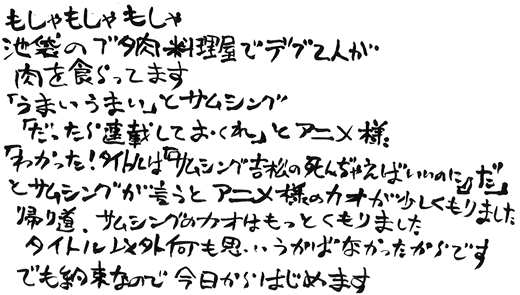 もしゃもしゃもしゃ
池袋のブタ肉料理屋でデブ2人が
肉を食らってます
「うまいうまい」とサムシング
「だったら連載しておくれ」とアニメ様
「わかった!タイトルは『サムシング吉松の死んぢゃえばいいのに』だ」
とサムシングが言うとアニメ様のカオが少しくもりました
帰り道、サムシングのカオはもっとくもりました
タイトル以外何も思いうかばなかったからです
でも約束なので今日からはじめます